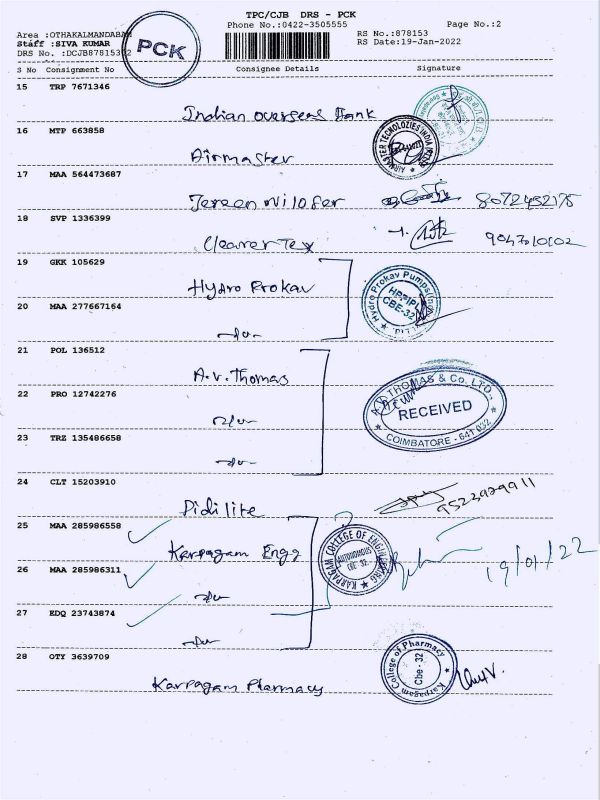 TPC/CJB DRS - PCK
Phone No.:0422-3505555 Page No.:2
Area :OTHAKALMANDABAM
Staff :SIVA KUMAR
RS No.:878153
RS Date:19-Jan-2022
PCK
S No Consignment No Consignee Details Signature
15 TRP 7671346
Indian overseas Bank
16 MTP 663858
Airmaster
AIRMASTER TECNOLOZIES INDIA
17 MAA 564473687
Jereen Nilofer 8072452175
18 SVP 1336399
Clearer Tex
19 GKK 105629
Hydro Prokav
Hydro Prokav Pumps
HPPIPL
CBE-32
20 MAA 277667164
-do-
21 POL 136512
A.V. Thomas
A.V. THOMAS & Co. LTD.,
RECEIVED
COIMBATORE - 641 032
22 PRO 12742276
-do-
23 TRZ 135486658
-do-
24 CLT 15203910
Pidilite 9523929911
25 MAA 285986558
Karpagam Engg
KARPAGAM COLLEGE OF ENGINEERING
AUTONOMOUS
CBE-32
19/01/22
26 MAA 285986311
-do-
27 EDQ 23743874
-do-
28 OTY 3639709
Karpagam Pharmacy
Karpagam College of Pharmacy
Cbe - 32